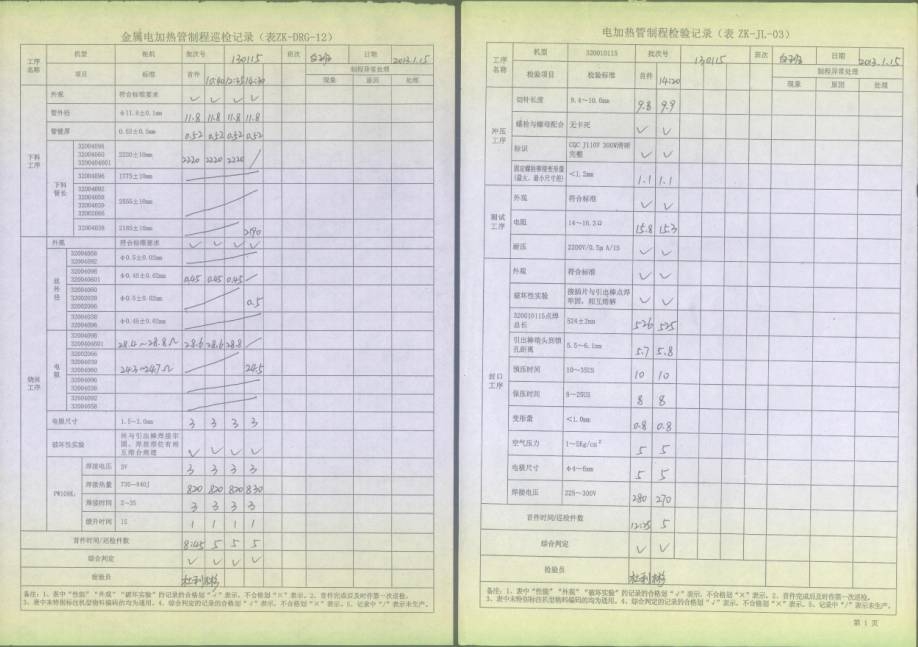 金属电加热管制程巡检记录（表ZK-DRG-12）
工序名称 机型 柜机 批次号 130115 班次 日期 2013.1.15
项目 标准 首件 10:40 12:45 14:30 制程异常处理
现象 原因 处理
下料工序
外观 符合标准要求 ✓ ✓ ✓ ✓
管外径 Φ11.8±0.1mm 11.8 11.8 11.8 11.8
管壁厚 0.52±0.5mm 0.52 0.52 0.52 0.52
下料管长
2220±10mm 2220 2220 2220 /
32004096 1775±10mm
2555±10mm
32004038 2180±10mm 2190
绕丝工序
外观 符合标准要求 ✓ ✓ ✓ ✓
丝外径
Φ0.5±0.02mm
Φ0.45±0.02mm 0.45 0.45 0.45 /
Φ0.5±0.02mm 0.5
Φ0.45±0.02mm
电阻
28.4~28.8Ω 28.6 28.6 28.8 /
24.3~24.7Ω 24.5
电极尺寸 1.5~3.0mm 3 3 3 3
破坏性实验 ✓ ✓ ✓ ✓
焊接电压 3V 3 3 3 3
焊接热量 735~840J 820 820 820 830
焊接时间 2~35 3 3 3 3
缓升时间 1S 1 1 1 1
首件时间/巡检件数 8:45 5 5 5
综合判定 ✓ ✓ ✓ ✓
检验员
备注：1、表中“性能”“外观”“破坏实验”的记录的合格划“✓”表示，不合格划“×”表示。2、首件完成后及时作第一次巡检。
3、表中未特别标注机型物料编码的均为通用。4、综合判定的记录的合格划“✓”表示，不合格划“×”表示。5、记录中“/”表示未生产。
电加热管制程检验记录（表 ZK-JL-03）
工序名称 机型 320010115 批次号 130115 班次 日期 2013.1.15
检验项目 检验标准 首件 14:20 制程异常处理
现象 原因 处理
冲压工序
切针长度 9.4~10.0mm 9.8 9.9
螺栓与螺母配合 无卡死 ✓ ✓
标识 CQC J110V 300W清晰完整 ✓ ✓
固定螺栓铆接变形量(最大、最小尺寸差) <1.2mm 1.1 1.1
测试工序
外观 符合标准 ✓ ✓
电阻 14~16.2Ω 15.8 15.3
耐压 2200V/0.5mA/1S ✓ ✓
封口工序
外观 符合标准 ✓ ✓
破坏性实验 接插片与引出棒点焊牢固，相互熔解 ✓ ✓
320010115点焊总长 524±2mm 526 525
引出棒端头到销孔距离 5.5~6.1mm 5.7 5.8
预压时间 10~35CS 10 10
保压时间 8~25CS 8 8
变形量 <1.0mm 0.8 0.8
空气压力 1~5Kg/cm² 5 5
电极尺寸 Φ4~6mm 5 5
焊接电压 225~300V 280 270
首件时间/巡检件数 12:25 5
综合判定 ✓ ✓
检验员
备注：1、表中“性能”“外观”“破坏实验”的记录的合格划“✓”表示，不合格划“×”表示。2、首件完成后及时作第一次巡检。
3、表中未特别标注机型物料编码的均为通用。4、综合判定的记录的合格划“✓”表示，不合格划“×”表示。5、记录中“/”表示未生产。
第 1 页